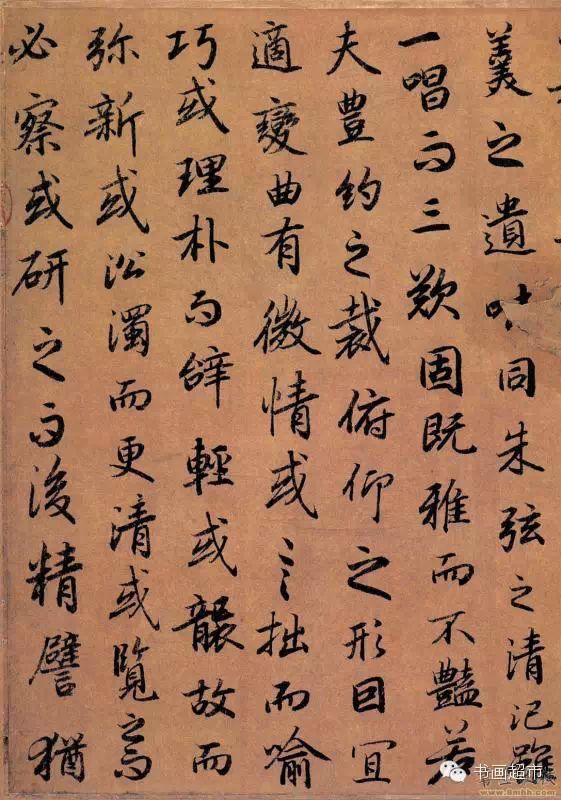 羹之遺同朱弦之清汜雖
一唱而三歎固既雅而不豔若
夫豊約之裁俯仰之形因宜
適變曲有微情或言拙而喻
巧或理朴而辞輕或襲故而
弥新或沿濁而更清或覽之而
必察或研之而後精譬猶
书画超市